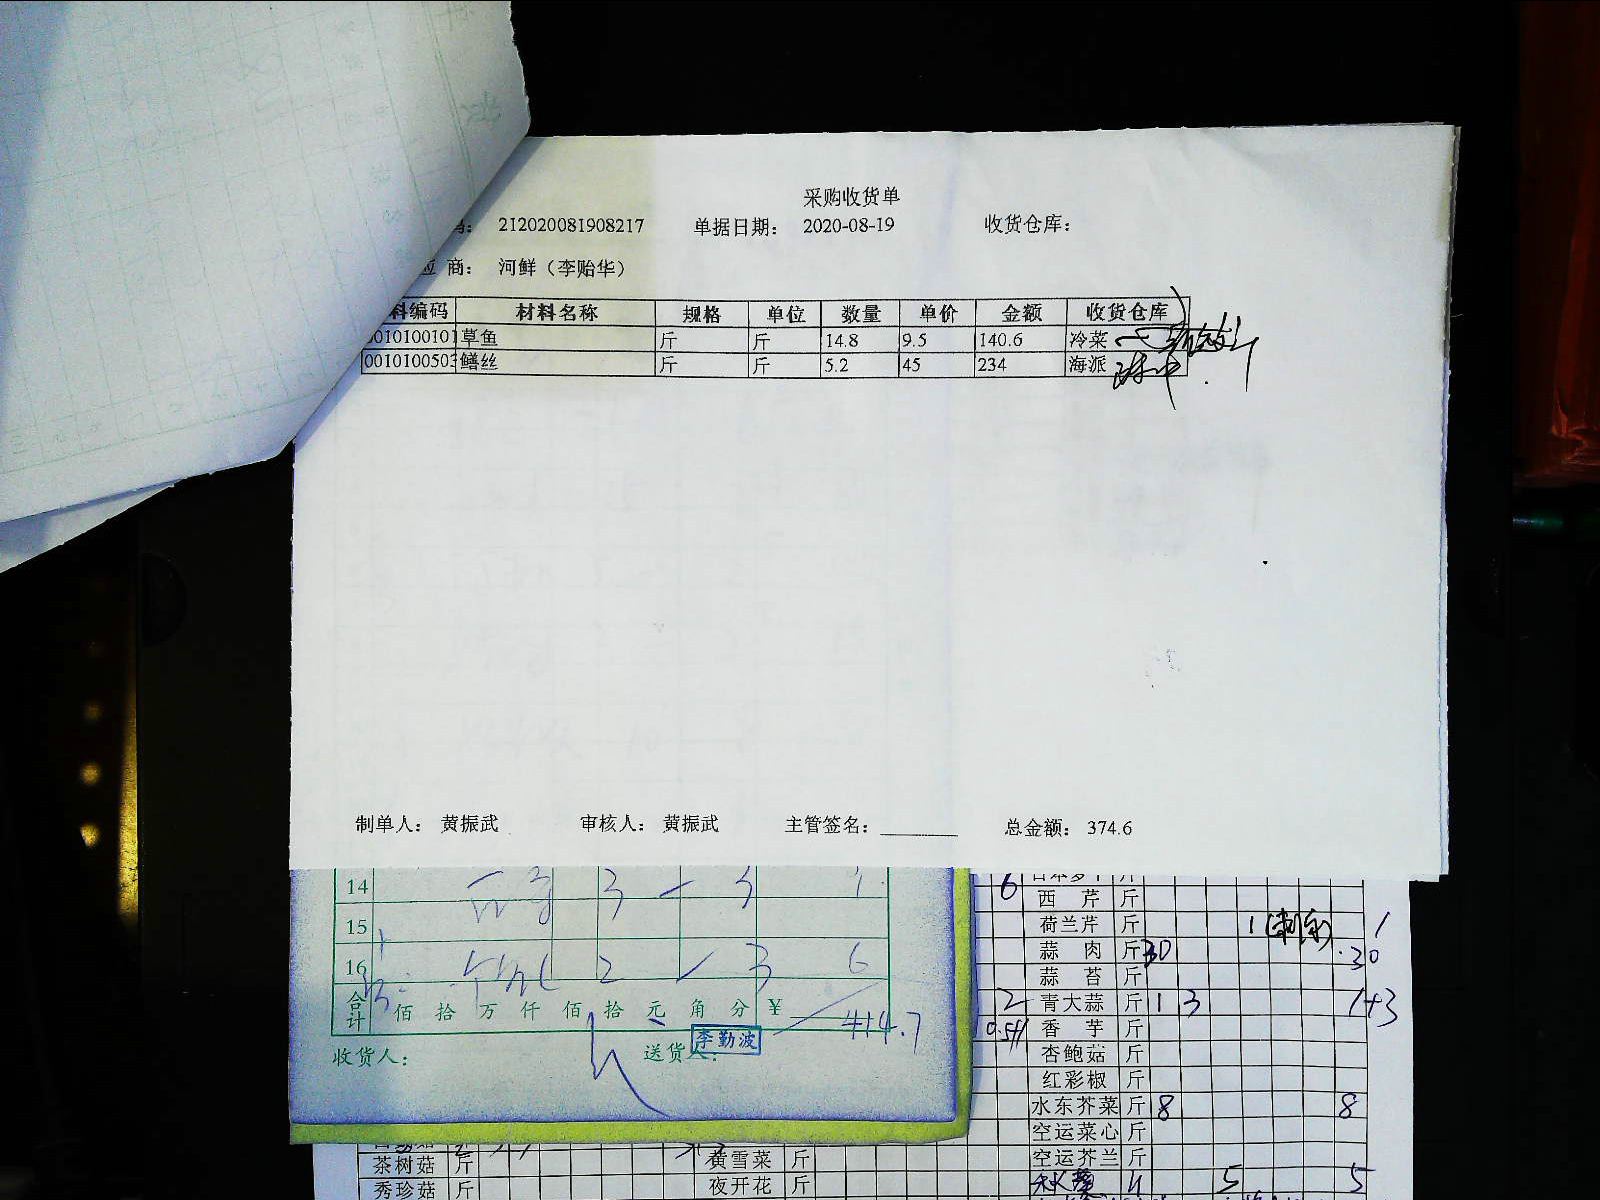 采购收货单
码： 212020081908217 单据日期： 2020-08-19 收货仓库：
应 商： 河鲜（李贻华）
料编码 材料名称 规格 单位 数量 单价 金额 收货仓库
0010100101 草鱼 斤 斤 14.8 9.5 140.6 冷菜
0010100503 鳝丝 斤 斤 5.2 45 234 海派
制单人： 黄振武 审核人： 黄振武 主管签名： 总金额： 374.6
14 3 3
15
16 2 3 6
合计 佰 拾 万 仟 佰 拾 元 角 分 ¥ 414.7
收货人： 送货人：
李勤波
6
西 芹 斤
荷兰芹 斤 1 1
蒜 肉 斤 30 30
蒜 苔 斤
2 青大蒜 斤 1 3 1+3
香 芋 斤
杏鲍菇 斤
红彩椒 斤
水东芥菜 斤 8 8
空运菜心 斤
空运芥兰 斤
5 5
茶树菇 斤 黄雪菜 斤
秀珍菇 斤 夜开花 斤